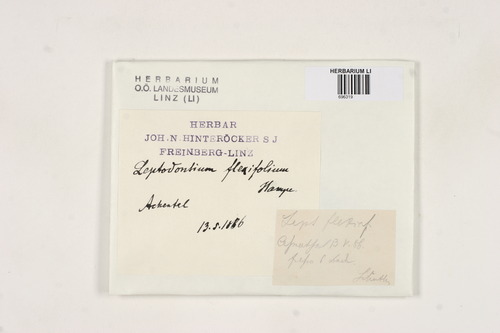 HERBARIUM
O.Ö. LANDESMUSEUM
LINZ (LI)
HERBARIUM LI
HERBAR
JOH. N. HINTERÖCKER S J
FREINBERG-LINZ
Leptodontium flexifolium
Hampe.
13.5.1886
Lept flexif